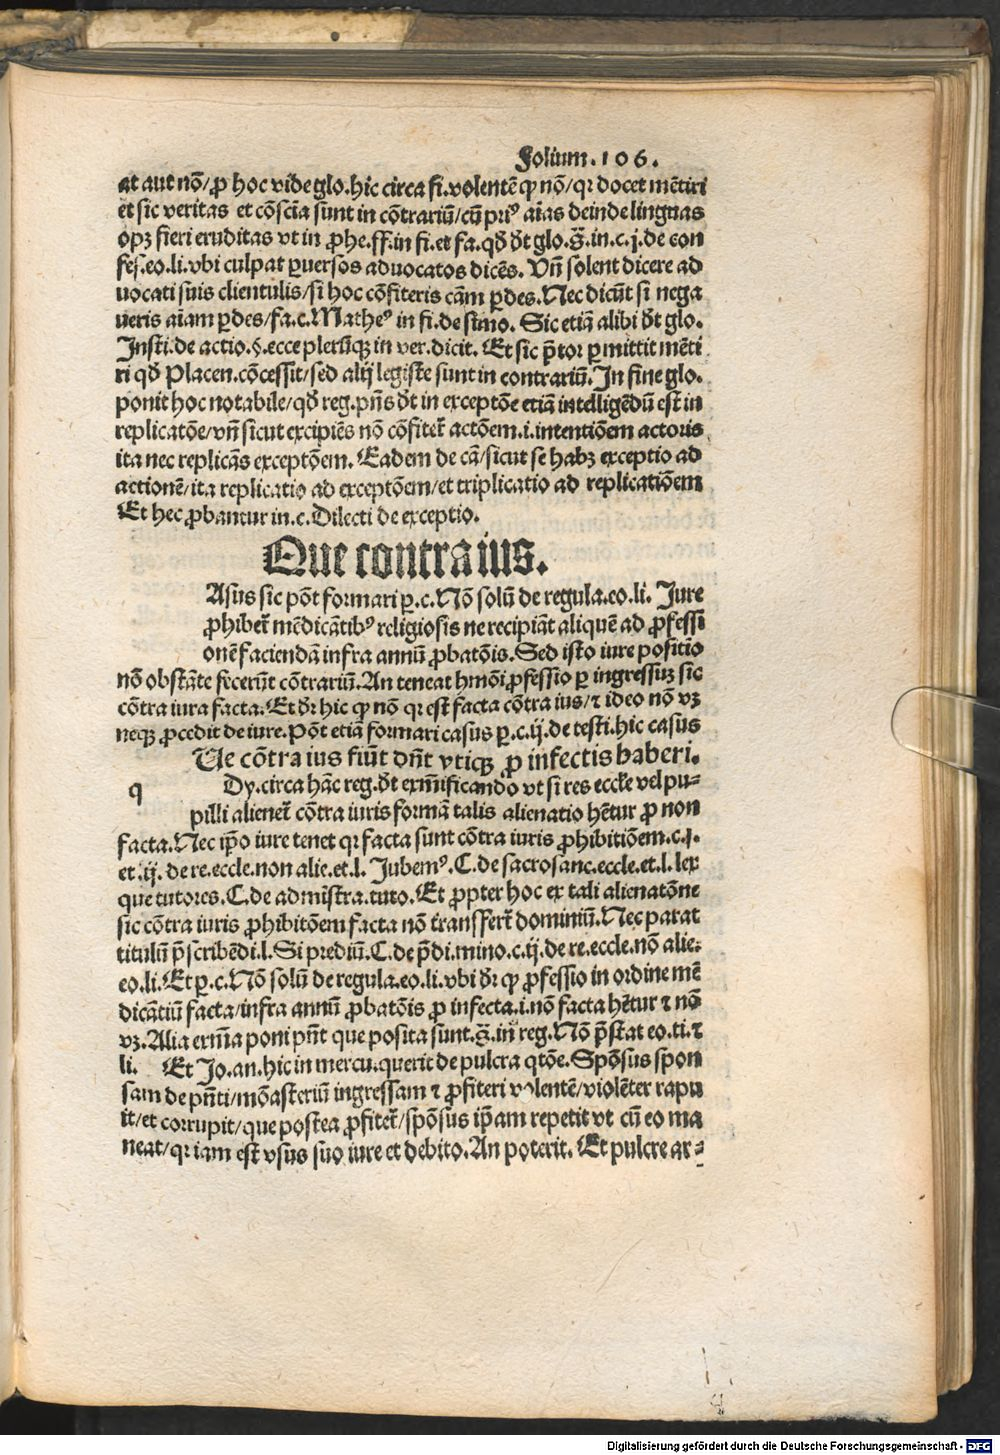 Folium.106.
at aut nō/ꝓ hoc vide glo.hic circa fi.volentē ꝙ nō/qꝛ docet mētiri
et sic veritas et cōsciā sunt in cōtrariū/cū priꝰ aīas deinde linguas
opꝫ fieri eruditas vt in ꝓhe.ff.in fi.et fa.qd̄ dt̄ glo.s̄.in.c.j.de con
fes.eo.li.vbi culpat ꝑuersos aduocatos dicēs. Vn̄ solent dicere ad
uocati suis clientulis/si hoc cōfiteris cām ꝑdes. Nec dicūt si nega
ueris aīam ꝑdes/fa.c.Matheꝰ in fi.de simo. Sic etiā alibi dt̄ glo.
Insti.de actio.§.ecce plerūqꝫ in ver.dicit. Et sic p̄tor ꝑmittit mēti
ri qd̄ Placen.cōcessit/sed alij legiste sunt in contrariū.In fine glo.
ponit hoc notabile/qd̄ reg.pn̄s dt̄ in exceptōe etiā intelligēdū est in
replicatōe/vn̄ sicut excipiēs nō cōfitet̄ actōem.i.intentiōem actoris
ita nec replicās exceptōem. Eadem de cā/sicut se habꝫ exceptio ad
actionē/ita replicatio ad exceptōem/et triplicatio ad replicatiōem
Et hec ꝓbantur in.c.Dilecti de exceptio.
Que contra ius.
Asus sic pōt formari ꝑ.c.Nō solū de regula.eo.li. Jure
ꝓhibet̄ mēdicātibꝰ religiosis ne recipiāt aliquē ad ꝓfessi
onē faciendā infra annū ꝓbatōis. Sed isto iure positio
nō obstāte fecerūt cōtrariū. An teneat hmōi ꝓfessio ꝑ ingressuꝫ sic
cōtra iura facta. Et dr̄ hic ꝙ nō qꝛ est facta cōtra ius/⁊ ideo nō vꝫ
neqꝫ ꝓcedit de iure. Pōt etiā formari casus ꝑ.c.ij.de testi.hic casus
Ue cōtra ius fiūt dn̄t vtiqꝫ ꝓ infectis haberi.
q Dy.circa hāc reg.dt̄ exm̄ificando vt si res eccl̄e vel pu-
pilli alienet̄ cōtra iuris formā talis alienatio hētur ꝓ non
facta. Nec ip̄o iure tenet qꝛ facta sunt cōtra iuris ꝓhibitiōem.c.j.
et.ij. de re.eccle.non alie.et.l. Jubemꝰ.C.de sacrosanc.eccle.et.l.lex
que tutores.C.de admīstra.tuto. Et ꝓpter hoc ex tali alienatōne
sic cōtra iuris ꝓhibitōem facta nō transfert̄ dominiū. Nec parat
titulū p̄scribēdi.l.Si prediū.C.de p̄di.mino.c.ij.de re.eccle.nō alie.
eo.li. Et ꝑ.c.Nō solū de regula.eo.li.vbi dr̄ ꝙ ꝓfessio in ordine mē
dicātiū facta/infra annū ꝓbatōis ꝓ infecta.i.nō facta hētur ⁊ nō
vꝫ. Alia exm̄a poni pn̄t que posita sunt.s̄.in reg. Nō p̄stat eo.ti.⁊
li. Et Jo.an.hic in mercu.querit de pulcra qtōe. Spōsus spon
sam de pn̄ti/mōasteriū ingressam ⁊ ꝓfiteri volentē/violēter rapu
it/et corrupit/que postea ꝓfitet̄/spōsus ip̄am repetit vt cū eo ma
neat/qꝛ iam est vsus suo iure et debito. An poterit. Et pulcre ar-
Digitalisierung gefördert durch die Deutsche Forschungsgemeinschaft - DFG